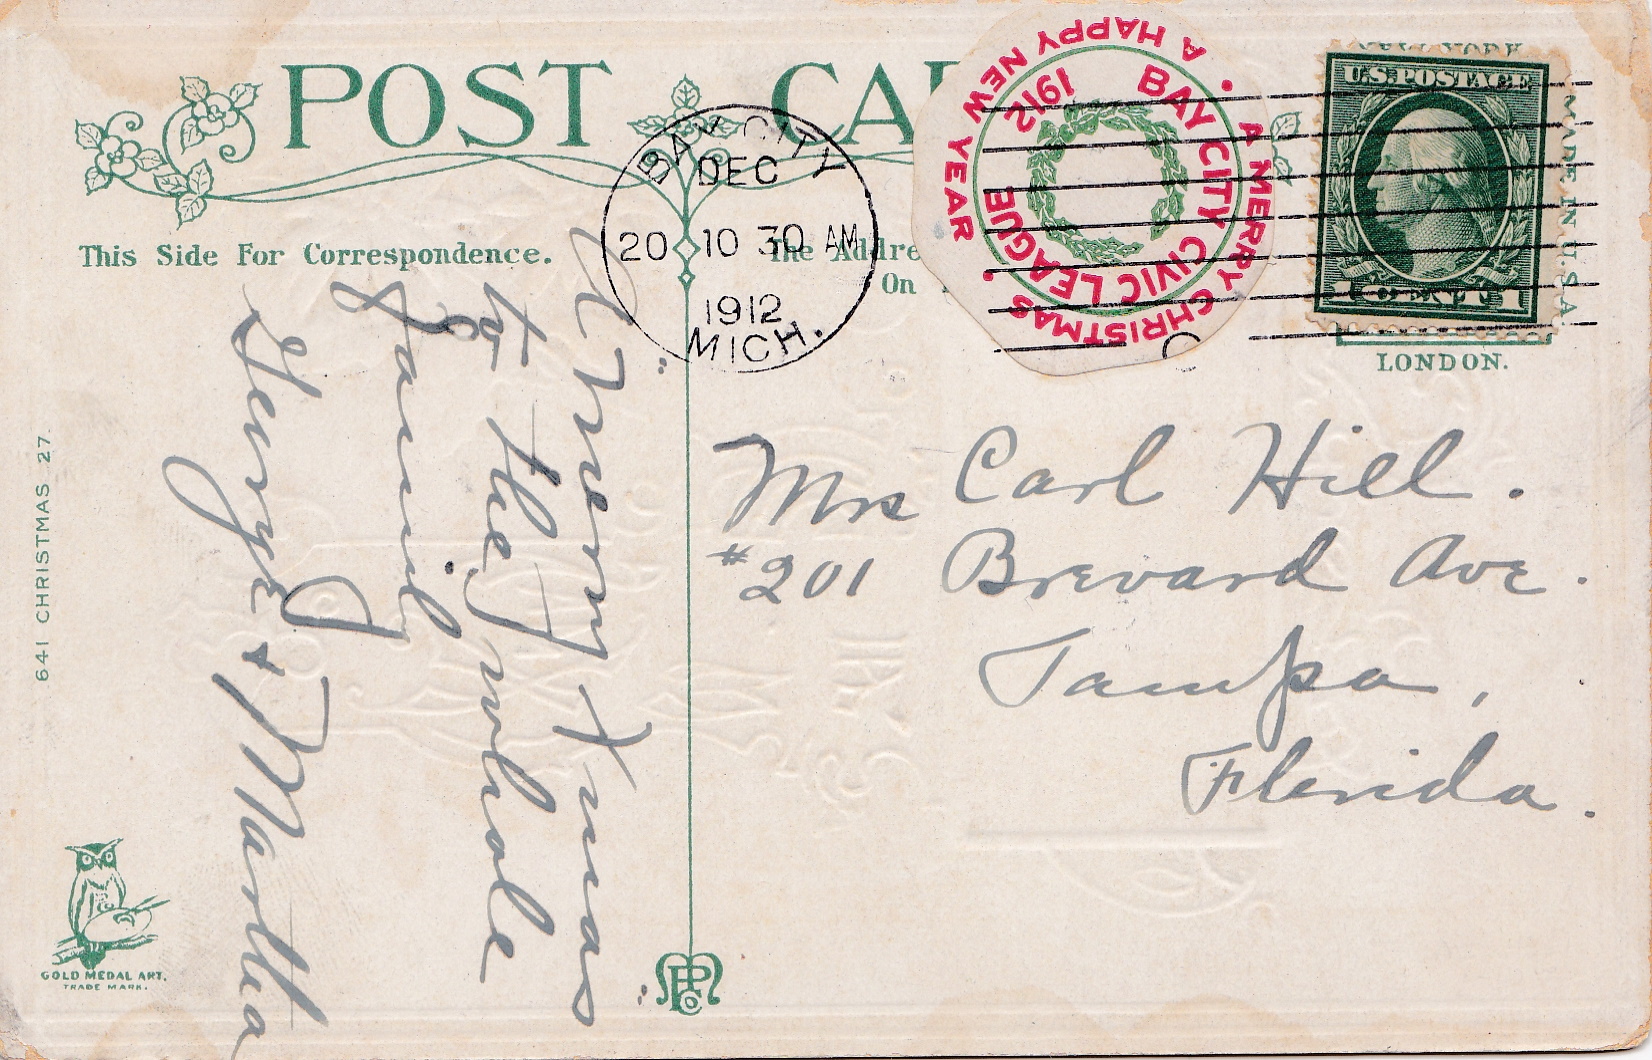 POST CA
This Side For Correspondence.
The Addre
On
BAY CITY
DEC
20 10 30 AM
1912
MICH.
A MERRY CHRISTMAS • A HAPPY NEW YEAR
BAY CITY CIVIC LEAGUE 1912
NEW YORK
U.S. POSTAGE
1 CENT 1
MADE IN U.S.A.
LONDON.
A Merry Xmas
to the whole
Family
George & Martha
Mrs Carl Hill.
#201 Brevard Ave.
Tampa,
Florida.
641 CHRISTMAS 27.
GOLD MEDAL ART.
TRADE MARK.